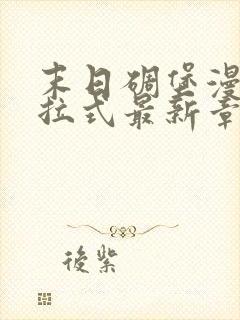 末日碉堡漫
拉式最新章
後紫